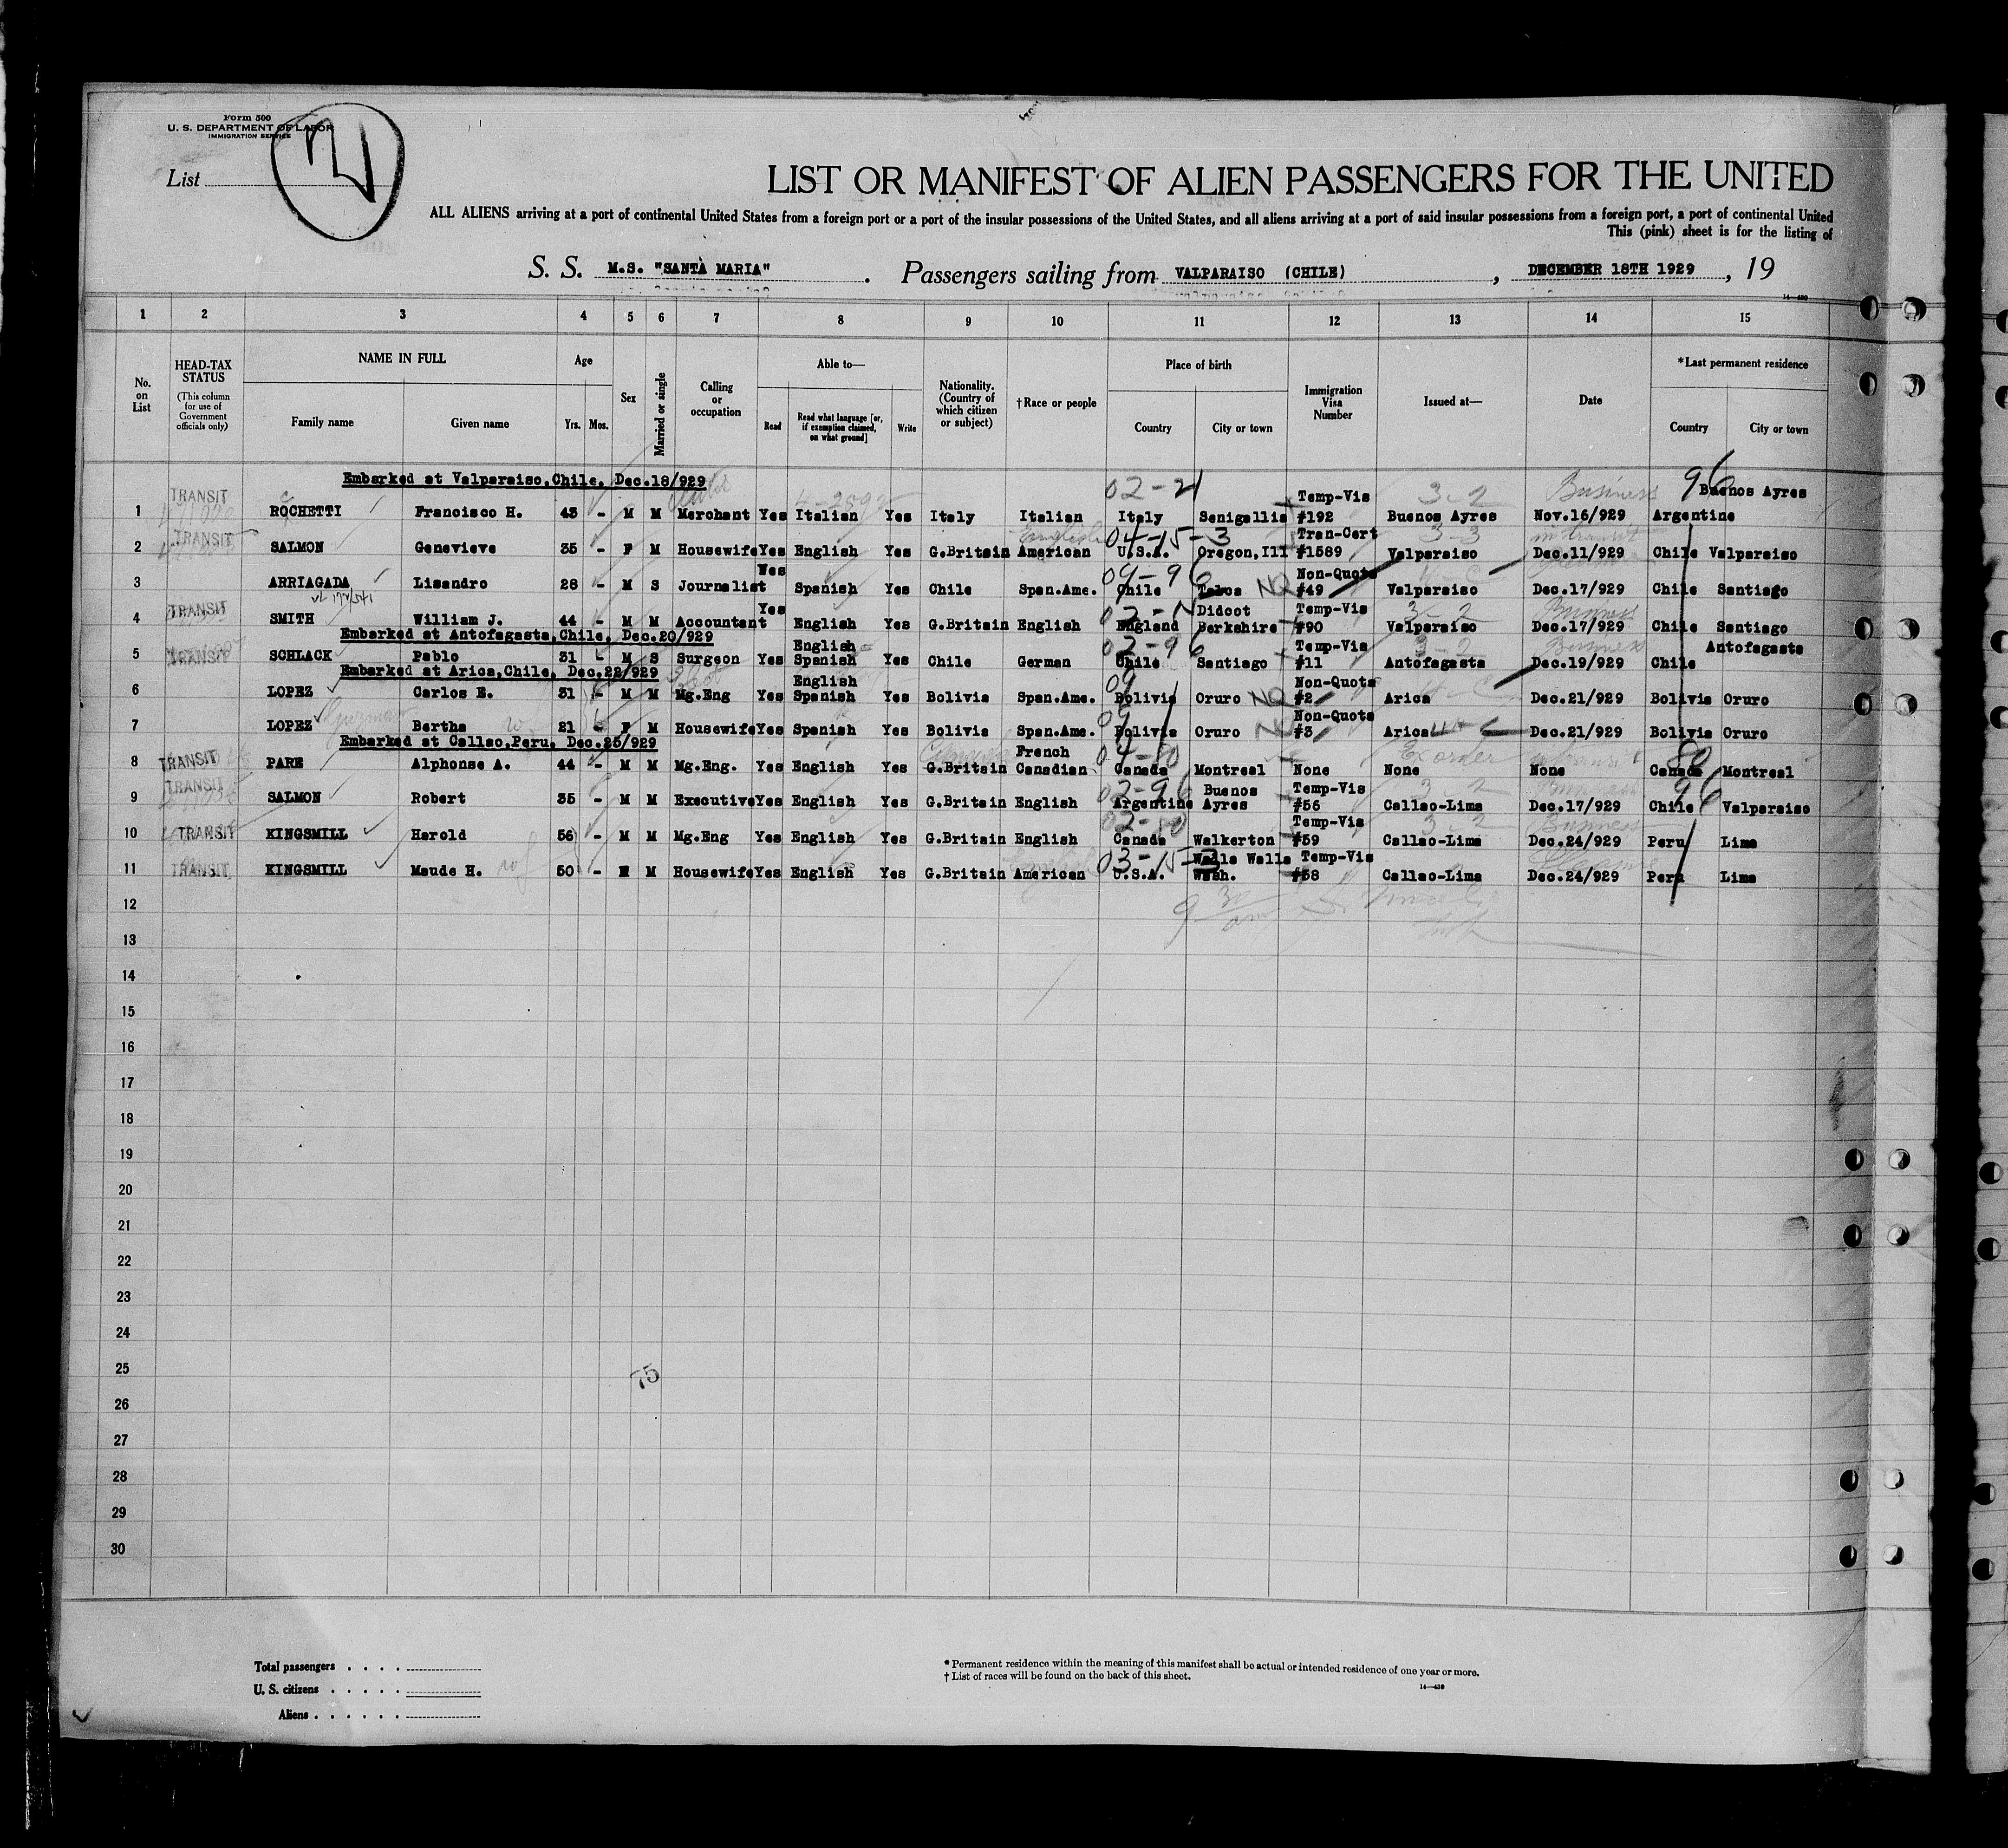 Form 500
U. S. DEPARTMENT OF LABOR
IMMIGRATION SERVICE
List
LIST OR MANIFEST OF ALIEN PASSENGERS FOR THE UNITED
ALL ALIENS arriving at a port of continental United States from a foreign port or a port of the insular possessions of the United States, and all aliens arriving at a port of said insular possessions from a foreign port, a port of continental United
This (pink) sheet is for the listing of
S. S. M.S. "SANTA MARIA". Passengers sailing from VALPARAISO (CHILE), DECEMBER 18TH 1929, 19
14—430
1 2 3 4 5 6 7 8 9 10 11 12 13 14 15
No. on List HEAD-TAX STATUS (This column for use of Government officials only) NAME IN FULL Family name Given name Age Yrs. Mos. Sex Married or single Calling or occupation Able to— Read Read what language [or, if exemption claimed, on what ground] Write Nationality. (Country of which citizen or subject) †Race or people Place of birth Country City or town Immigration Visa Number Issued at— Date *Last permanent residence Country City or town
Embarked at Valparaiso, Chile, Dec.18/929
02-21 3-2 Business 96
1 TRANSIT ROCHETTI Francisco H. 43 - M M Merchant Yes Italian Yes Italy Italian Italy Senigallia Temp-Vis #192 Buenos Ayres Nov.16/929 Argentine Buenos Ayres
English 04-15-3 3-3 in transit
2 TRANSIT SALMON Genevieve 35 - F M Housewife Yes English Yes G.Britain American U.S.A. Oregon, Ill Tran-Cert #1589 Valparaiso Dec.11/929 Chile Valparaiso
3 ARRIAGADA Lisandro 28 - M S Journalist Yes Spanish Yes Chile Span.Ame. Chile NQ Non-Quota #49 Valparaiso Dec.17/929 Chile Santiago
3-2 Business
4 TRANSIT SMITH William J. 44 - M M Accountant Yes English Yes G.Britain English England Didcot Berkshire Temp-Vis #90 Valparaiso Dec.17/929 Chile Santiago
Embarked at Antofagasta, Chile, Dec.20/929
02-96 3-2 Business
5 TRANSIT SCHLACK Pablo 31 - M S Surgeon Yes English Spanish Yes Chile German Chile Santiago Temp-Vis #11 Antofagasta Dec.19/929 Chile Antofagasta
Embarked at Arica, Chile, Dec.22/929
6 LOPEZ Carlos E. 31 - M M Mg.Eng Yes English Spanish Yes Bolivia Span.Ame. Bolivia Oruro NQ Non-Quota #2 Arica Dec.21/929 Bolivia Oruro
Guzman
7 LOPEZ Bertha 21 - F M Housewife Yes Spanish Yes Bolivia Span.Ame. Bolivia Oruro Non-Quota #3 Arica Dec.21/929 Bolivia Oruro
Embarked at Callao, Peru, Dec.25/929
8 TRANSIT PARE Alphonse A. 44 - M M Mg.Eng. Yes English Yes G.Britain French Canadian Canada Montreal None None None Canada Montreal
02-96 3-2 96
9 TRANSIT SALMON Robert 35 - M M Executive Yes English Yes G.Britain English Argentine Buenos Ayres Temp-Vis #56 Callao-Lima Dec.17/929 Chile Valparaiso
3-2 Business
10 TRANSIT KINGSMILL Harold 56 - M M Mg.Eng Yes English Yes G.Britain English Canada Walkerton Temp-Vis #59 Callao-Lima Dec.24/929 Peru Lima
03-15-3
11 TRANSIT KINGSMILL Maude H. 50 - M Housewife Yes English Yes G.Britain American U.S.A. Walla Walla Wash. Temp-Vis #58 Callao-Lima Dec.24/929 Peru Lima
12
13
14
15
16
17
18
19
20
21
22
23
24
25
75
26
27
28
29
30
Total passengers . . . .
U. S. citizens . . . . .
Aliens . . . . . .
* Permanent residence within the meaning of this manifest shall be actual or intended residence of one year or more.
† List of races will be found on the back of this sheet.
14—430